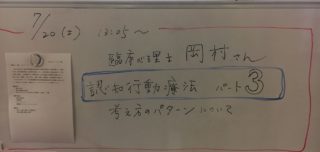 7/20(土) 13:05〜
臨床心理士 岡村さん
認知行動療法 パート3
考え方のパターンについて